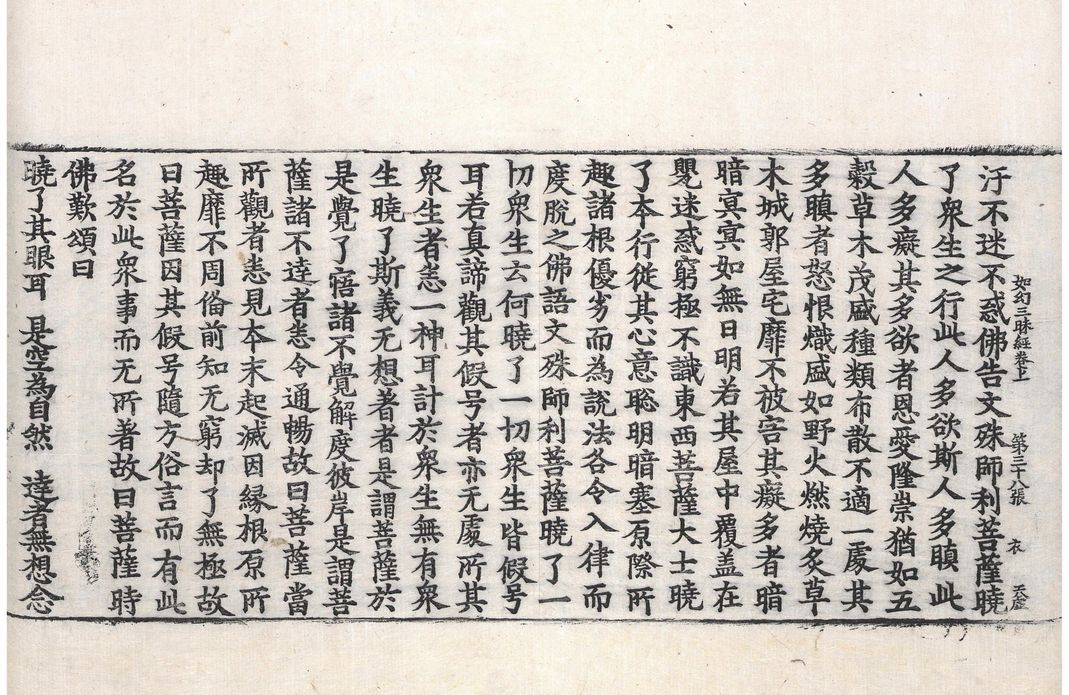 如幻三昧經卷上 第三十八張 衣
汙不迷不惑佛告文殊師利菩薩曉
了衆生之行此人多欲斯人多瞋此
人多癡其多欲者恩愛隆崇猶如五
穀草木茂盛種類布散不適一處其
多瞋者怒恨熾盛如野火燃燒炙草
木城郭屋宅靡不被害其癡多者暗
暗冥冥如無日明若其屋中覆盖在
甖迷惑窮極不識東西菩薩大士曉
了本行從其心意聡明暗塞原際所
趣諸根優劣而為說法各令入律而
度脫之佛語文殊師利菩薩曉了一
切衆生云何曉了一切衆生皆假号
耳若真諦觀其假号者亦无處所其
衆生者悉一神耳計於衆生無有衆
生曉了斯義无想著者是謂菩薩於
是覺了寤諸不覺解度彼岸是謂菩
薩諸不達者悉令通暢故曰菩薩當
所觀者悉見本末起滅因縁根原所
趣靡不周俻前知无窮却了無極故
曰菩薩因其假号隨方俗言而有此
名於此衆事而无所著故曰菩薩時
佛歎頌曰
曉了其眼耳 是空為自然 達者無想念